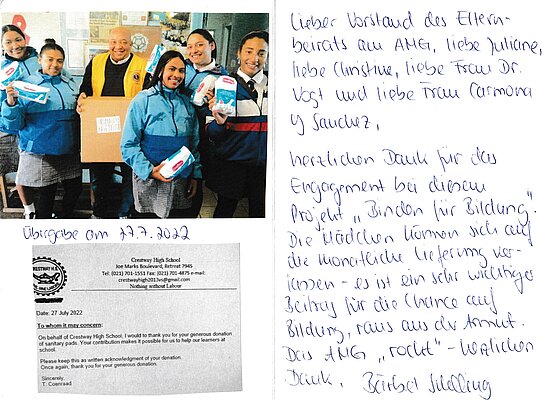 Übergabe am 27.7.2022
CRESTWAY H.S.
Crestway High School
Joe Marks Boulevard, Retreat 7945
Tel: (021) 701-1551 Fax: (021) 701-4875 e-mail:
crestwayhigh2013vs@gmail.com
Nothing without Labour
Date: 27 July 2022
To whom it may concern:
On behalf of Crestway High School, I would to thank you for your generous donation
of sanitary pads. Your contribution makes it possible for us to help our learners at
school.
Please keep this as written acknowledgment of your donation.
Once again, thank you for your generous donation.
Sincerely,
T. Coenraad
Lieber Vorstand des Eltern-
beirats am AMG, liebe Juliane,
liebe Christine, liebe Frau Dr.
Vogt und liebe Frau Carmona
y Sanchez,
herzlichen Dank für das
Engagement bei diesem
Projekt „Binden für Bildung".
Die Mädchen können sich auf
die monatliche Lieferung ver-
lassen - es ist ein sehr wichtiger
Beitrag für die Chance auf
Bildung, raus aus der Armut.
Das AMG „rockt" - herzlichen
Dank, Bärbel